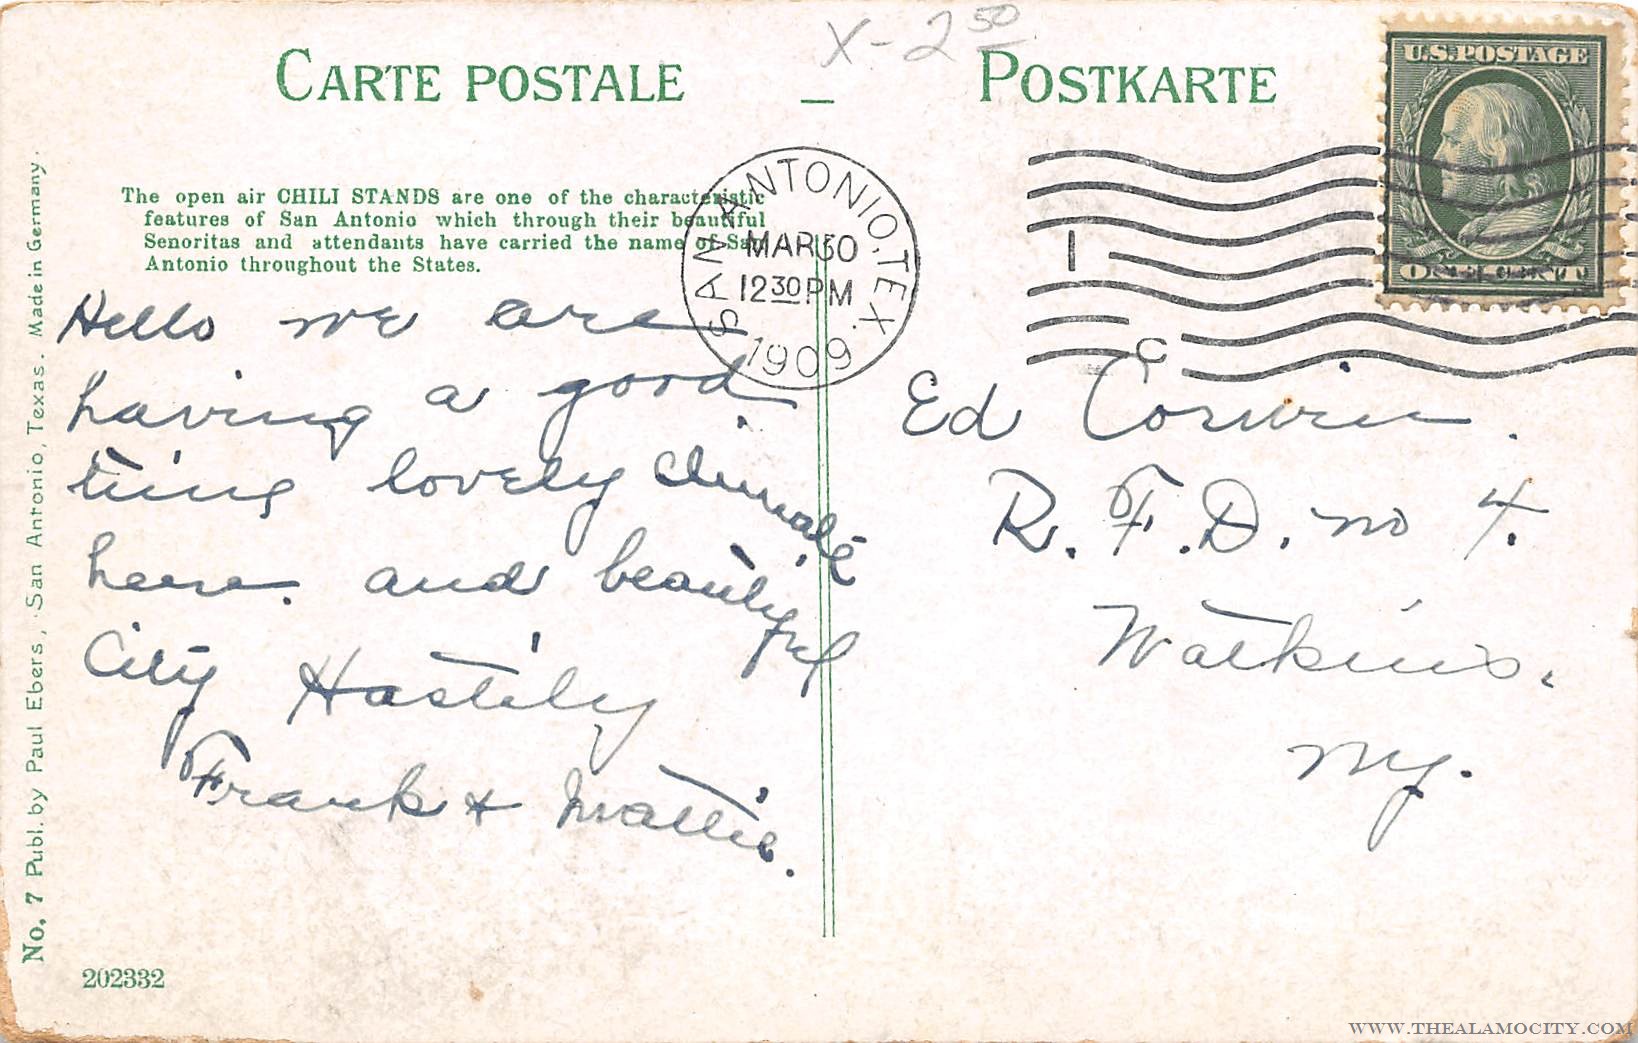 X - 2 50
CARTE POSTALE - POSTKARTE
U.S. POSTAGE
The open air CHILI STANDS are one of the characteristic
features of San Antonio which through their beautiful
Senoritas and attendants have carried the name of San
Antonio throughout the States.
SAN ANTONIO, TEX.
MAR 30
12 30 PM
1909
1
C
Hello we are
having a good
time lovely climate
here. and beautiful
City Hastily
Frank & Mattie.
Ed Corwin.
R. F. D. no 4.
Watkins.
NY.
No. 7 Publ. by Paul Ebers, San Antonio, Texas. Made in Germany.
202332
WWW.THEALAMOCITY.COM